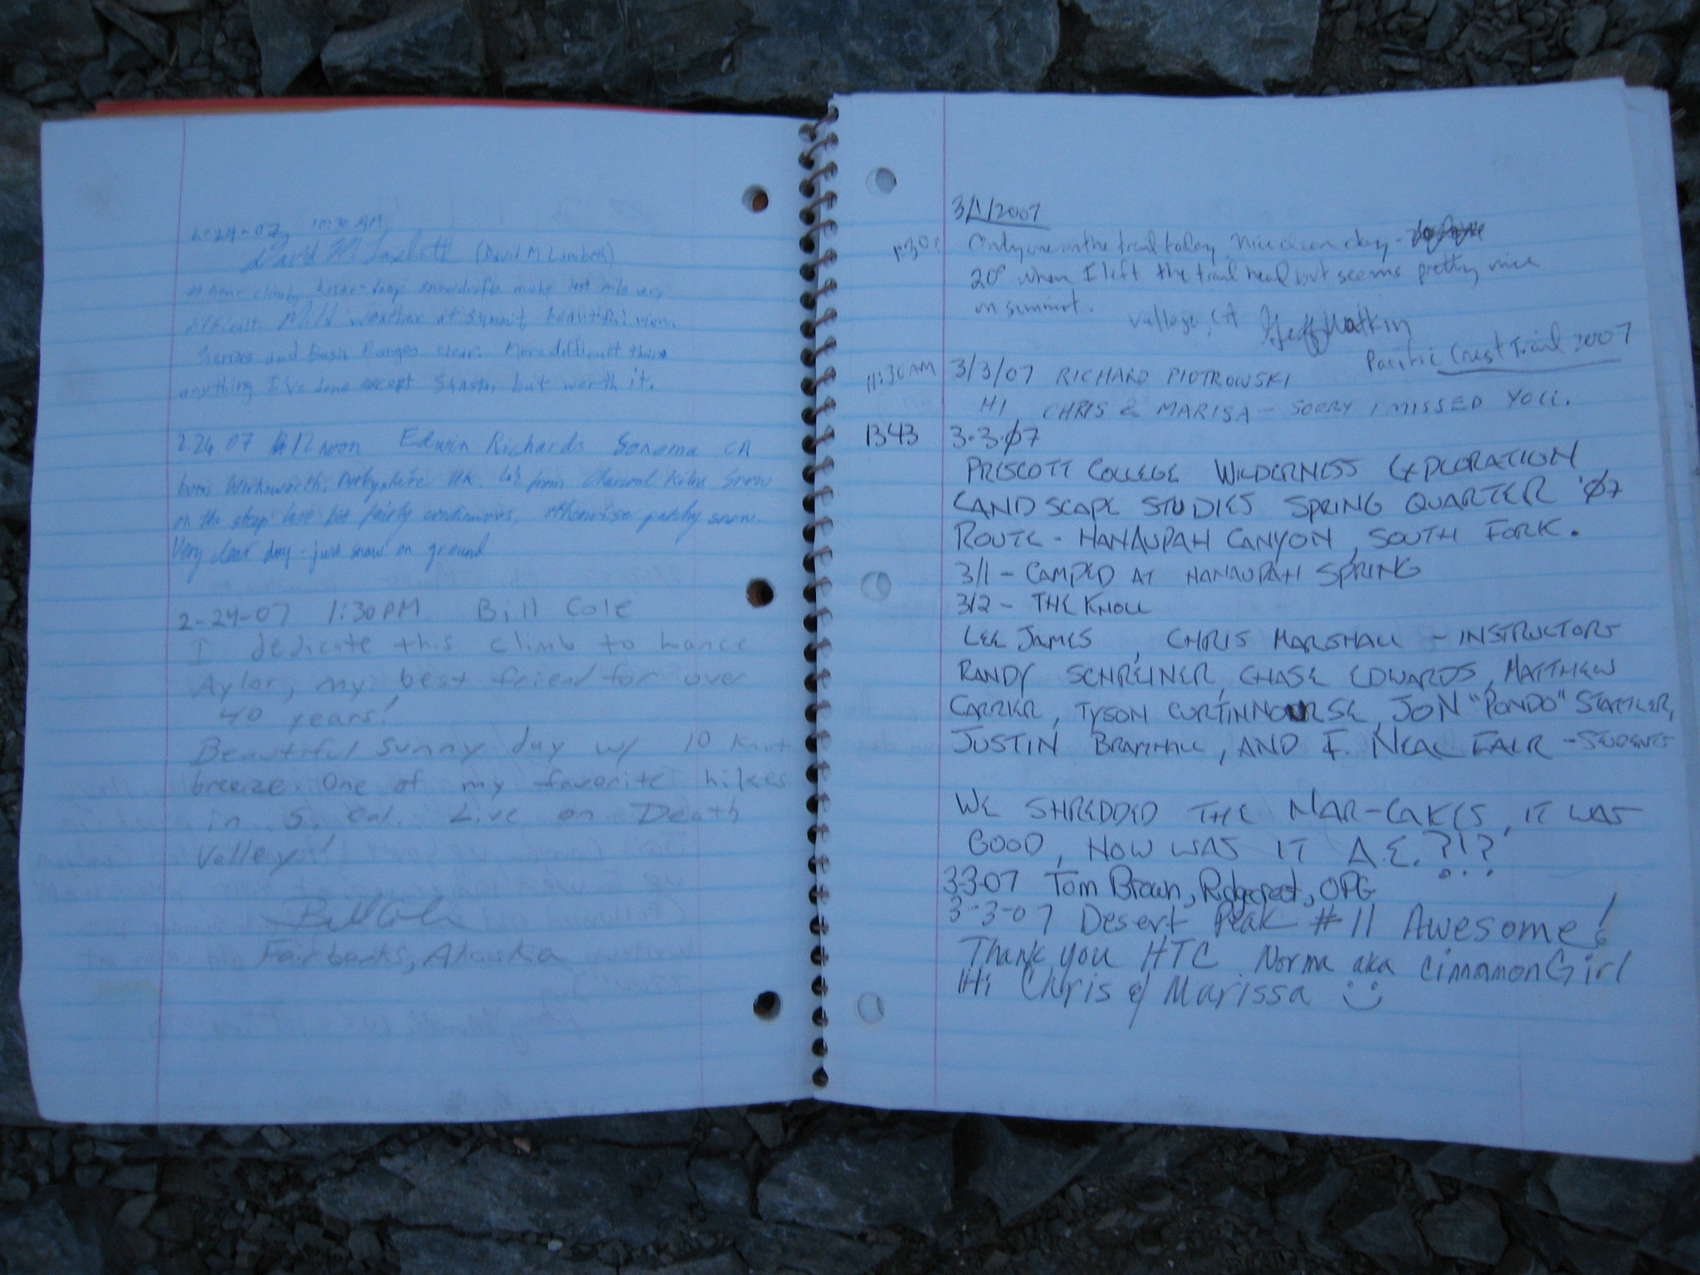 2-24-07, 10:30 AM
David M Lambeth (David M Lambeth)
climb, knee-deep snowdrifts make last mile very
difficult. Mild weather at summit, beautiful view.
Sierras and Basin Ranges clear. More difficult than
anything I've done except Shasta, but worth it.
2.24 07 12 noon Edwin Richards Sonoma CA
born Wirksworth, Derbyshire UK. from Charcoal Kilns Snow
on the steep last but fairly continuous, otherwise patchy snow.
Very clear day - just snow on ground
2-24-07 1:30PM Bill Cole
I dedicate this climb to Lance
Aylor, my best friend for over
40 years!
Beautiful sunny day w/ 10 knot
breeze. One of my favorite hikes
in S. Cal. Live on Death
Valley!
Bill Cole
Fairbanks, Alaska
3/1/2007
Only one on the trail today. Nice clean day -
20° when I left the trail head but seems pretty nice
on summit.
Valley, CA Jeff Watkin
Pacific Crest Trail 2007
11:30AM 3/3/07 RICHARD PIOTROWSKI
HI CHRIS & MARISA - SORRY I MISSED YOU.
1343 3.3.07
PRESCOTT COLLEGE WILDERNESS EXPLORATION
LANDSCAPE STUDIES SPRING QUARTER '07
ROUTE - HANAUPAH CANYON, SOUTH FORK.
3/1 - CAMPED AT HANAUPAH SPRING
3/2 - THE KNOLL
LEE JAMES, CHRIS MARSHALL - INSTRUCTORS
RANDY SCHREINER, CHASE EDWARDS, MATTHEW
CARRIER, TYSON CURTINNOURSE, JON "PONDO" STATTLER,
JUSTIN BRAMHALL, AND F. NEAL FAIR - STUDENTS
WE SHREDDED THE NAR-CAKES, IT WAS
GOOD, HOW WAS IT A.E.?!?
3-3-07 Tom Brown, Ridgecrest, OPG
3-3-07 Desert Peak #11 Awesome!
Thank you HTC Norma aka CinnamonGirl
Hi Chris & Marissa